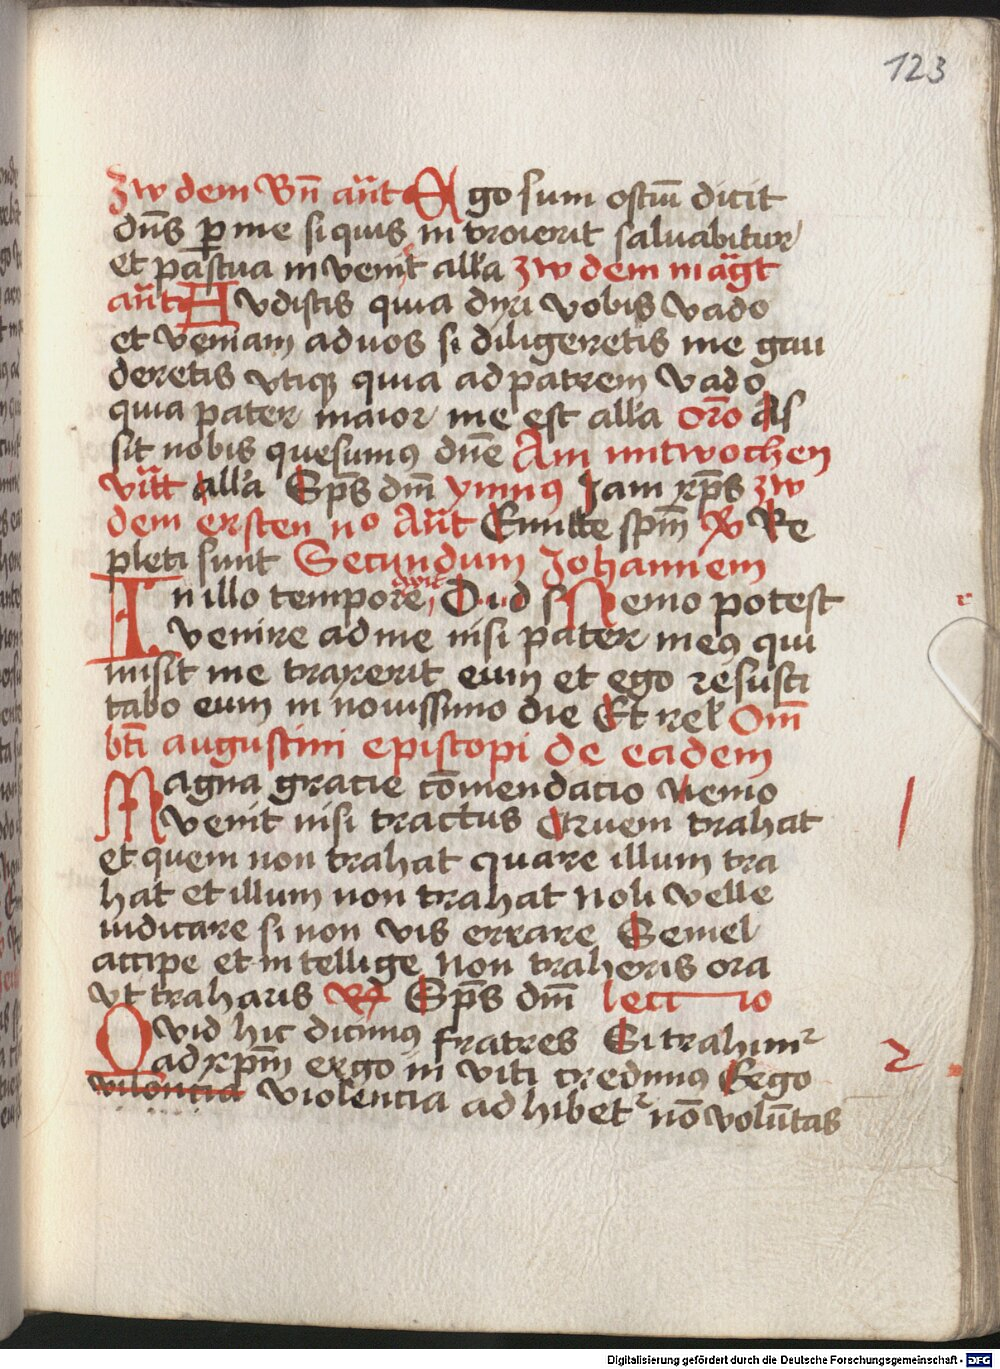 123
zw dem Bn̄ an̄t Ego sum ostiū dicit
dn̄s ꝑ me si quis in troierit saluabitur
et pastua in venit all'a zw dem māgt
an̄t Avdistis quia dixi vobis vado
et veniam ad uos si diligeretis me gau
deretis vtiqꝫ quia ad patrem vado
quia pater maior me est all'a Oro As
sit nobis quesumꝰ dn̄e Am mitwochen
all'a Sp̄s dm̄ ymnꝰ Jam xp̄s zw
dem ersten no An̄t Emitte spm̄ ℟ Re
pleti sunt Secundum Johannem
In illo tempore Nemo potest
venire ad me nisi pater meꝰ qui
misit me traxerit eum et ego resusci
tabo eum in nouissimo die Et rel' Om̄
bt̄i augustini episcopi de eadem
Magna gracie cōmendacio nemo
venit nisi tractus Quem trahat
et quem non trahat quare illum tra
hat et illum non trahat Noli velle
iudicare si non vis errare Semel
accipe et in tellige Non traheris ora
vt traharis Sp̄s dm̄ lectio
Qvid hic dicimꝰ fratres Si trahimr
ad xpm̄ ergo in viti credimꝰ Ergo
vilencia violencia ad hibetr nō volūtas
2
Digitalisierung gefördert durch die Deutsche Forschungsgemeinschaft - DFG